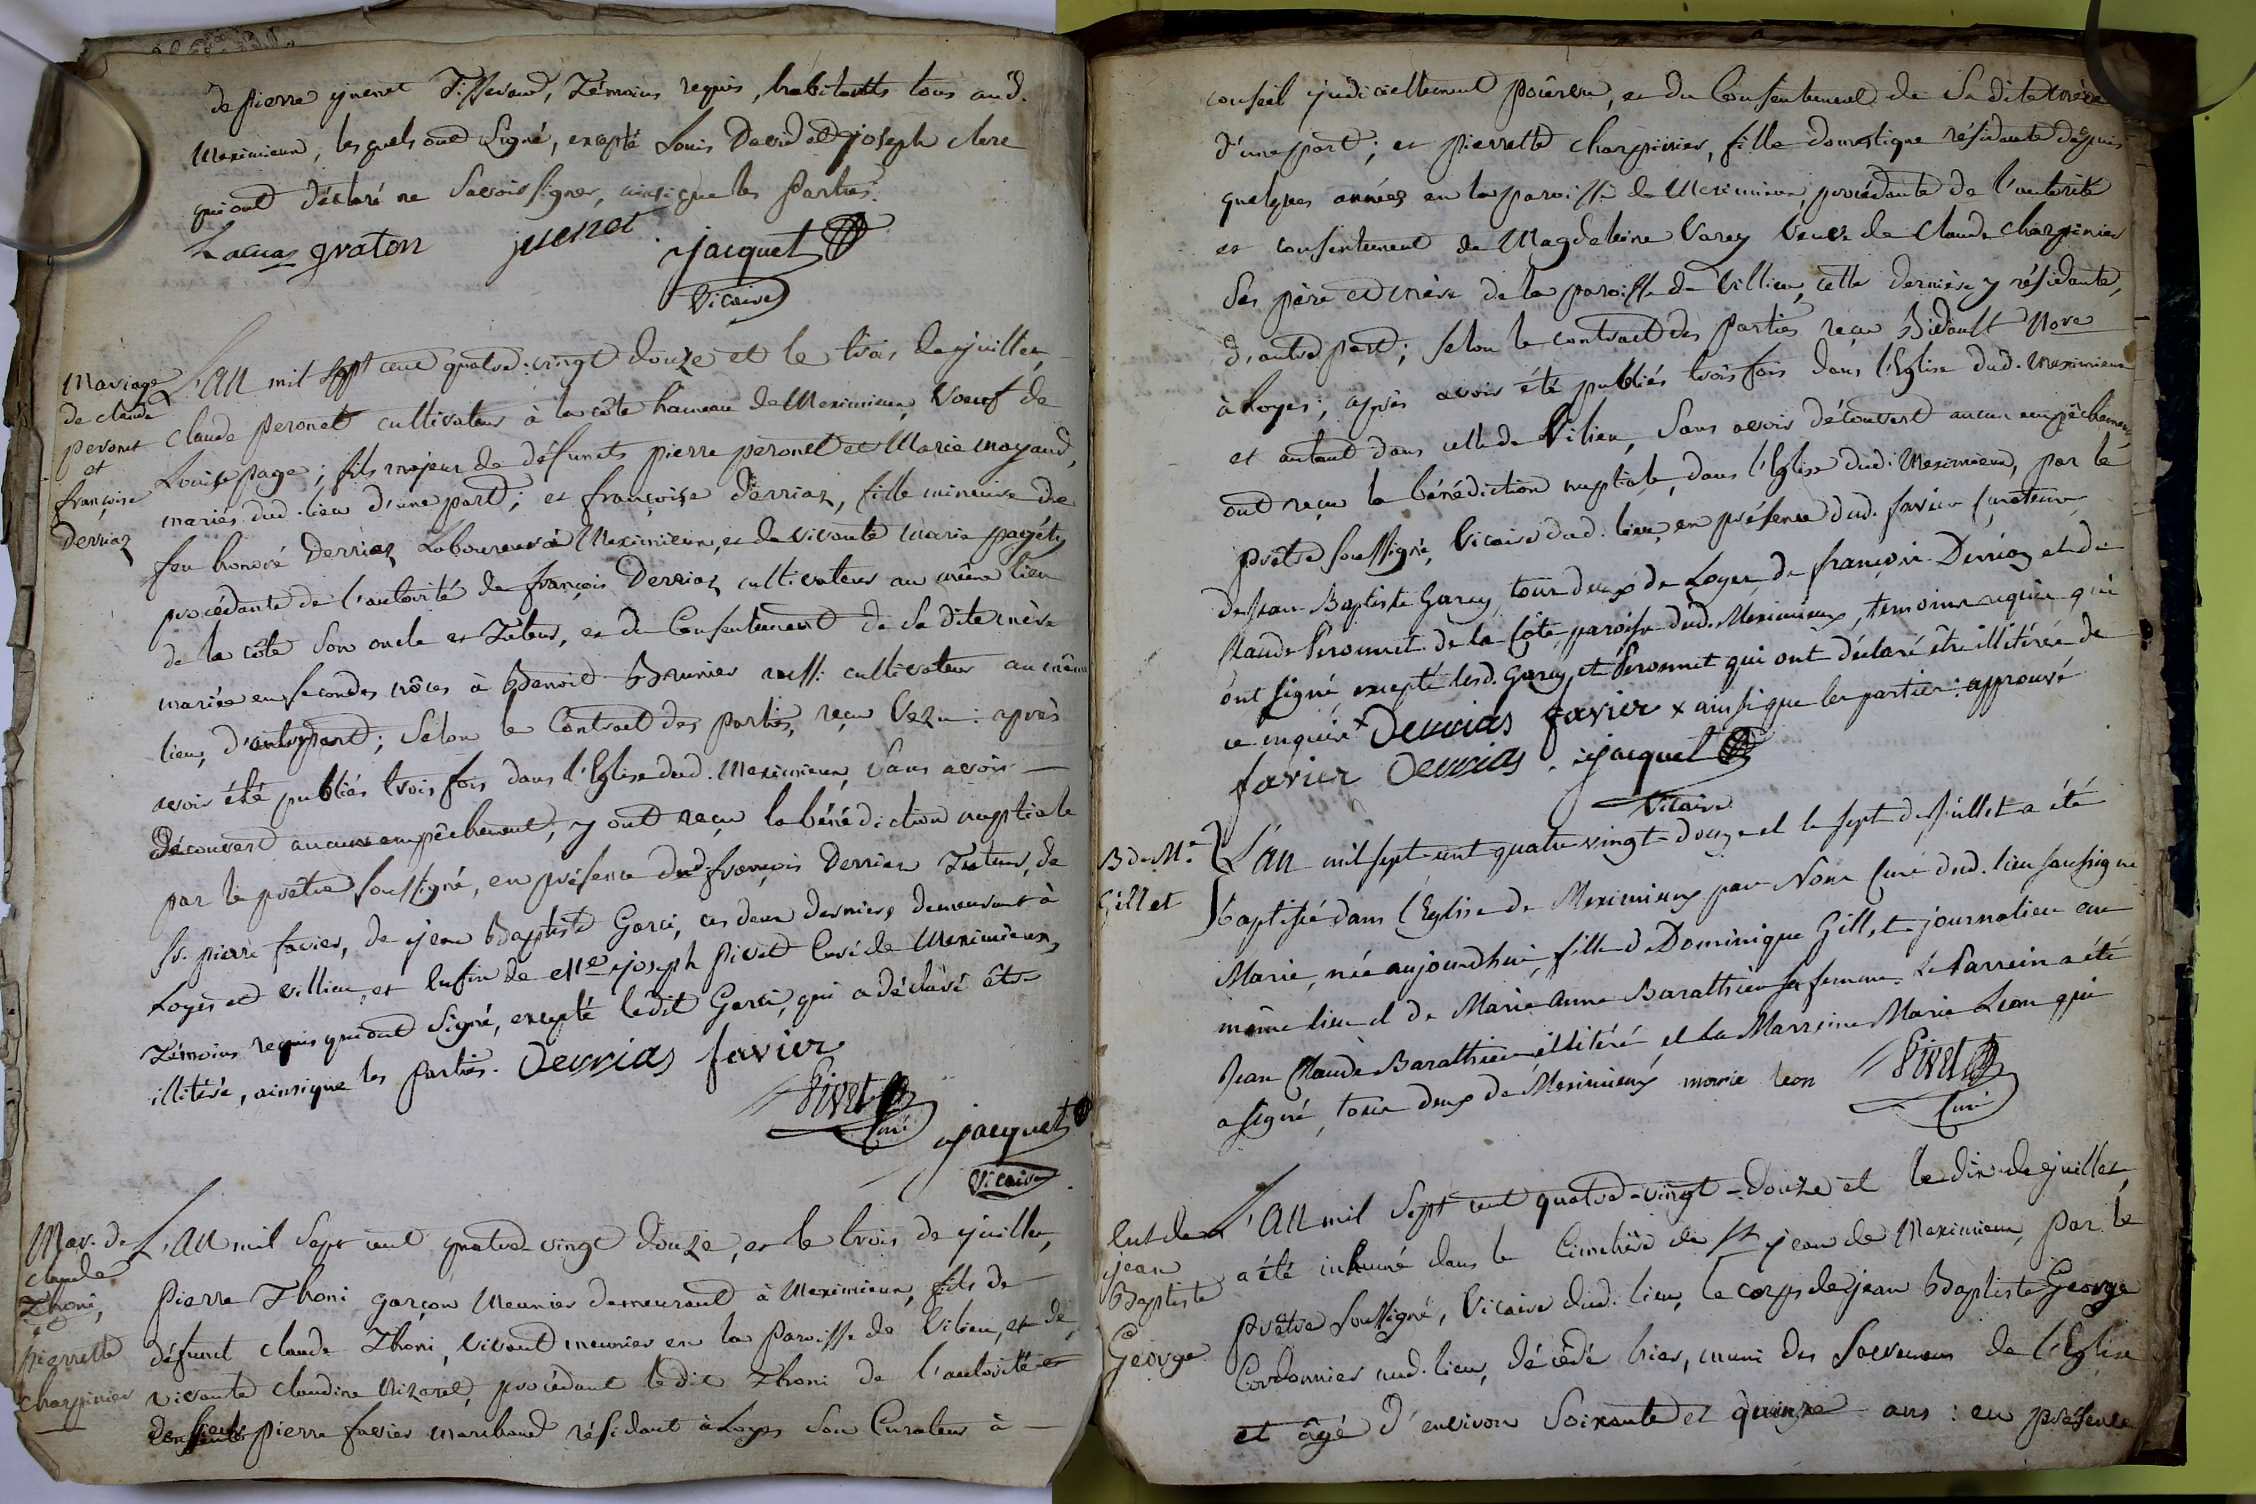 de pierre juenet Tisserand, Témoins requis, habitants tous aud.
Meximieux, lesquels ont signé, excepté Louis David et joseph clerc
qui ont déclaré ne savoir signer, ainsi que les Parties.
Lacuas graton juenet jacquet
Vicaire
Mariage
de claude
peronet
et
françoise
Derriaz
L'An mil sept cent quatre-vingt douze et le trois de juillet,
claude peronet cultivateur à la côte hameau de Meximieux, Voeuf de
Louise page; fils majeur de défunts pierre peronet et Marie moyaud,
mariés dud. lieu d'une part; et françoise derriaz, fille mineure de
feu honoré Derriaz Laboureur à Meximieux, et de vivante marie pagét,
procédante de l'autorité de françois Derriaz cultivateur au même lieu
de la côte son oncle et Tuteur, et du Consentement de sa dite mère
mariée en secondes nôces à Benoit Brunier aussi cultivateur au même
lieu, d'autre part; selon le Contract des parties, reçu Vezu: après
avoir été publiés trois fois dans l'Eglise dud. Meximieux, sans avoir
découvert aucun empêchement, y ont reçu la bénédiction nuptiale
par le prêtre soussigné, en présence dud françois Derriaz Tuteur, de
Sr. pierre favier, de jean Baptiste Garci, ces deux derniers demeurant à
Loyes et villieu, et enfin de Mre joseph Pivet Curé de Meximieux,
Témoins requis qui ont signé, excepté ledit Garci, qui a déclaré être
illitéré, ainsi que les parties. Derrias favier
Pivet
Curé jacquet
Vicaire
Mar. de
claude
Thoni,
et
pierrette
charpinier
L'An mil sept cent quatre vingt douze, et le trois de juillet,
pierre Thoni garçon Meunier demeurant à Meximieux, fils de
défunt claude Thoni, vivant meunier en la Paroisse de Vilieu, et de
vivante claudine Nizaret, procédant ledit Thoni de l'autorité et
pierre favier marchand résidant à Loyes son Curateur à
conseil judiciellement pourvu, et du Consentement de sa dite mère
d'une part; et pierrette charpinier, fille domestique résidante depuis
quelques années en la paroisse de Meximieux, procédante de l'autorité
et consentement de Magdeleine Varey Veuve de claude charpinier
ses père et mère de la paroisse de Villieu, cette dernière y résidante,
d'autre part; selon le contract des parties reçu Bidault Nore
à Loyes; après avoir été publiés trois fois dans l'Eglise dud. Meximieux
et autant dans celle de Vilieu, sans avoir découvert aucun empêchement,
ont reçu la bénédiction nuptiale, dans l'Eglise dud. Meximieux, par le
prêtre soussigné, Vicaire dud. lieu, en présence dud. favier curateur,
de Jean Baptiste Garcy tous deux de Loyes de françois Derriaz et de
Claude Peronnet de la Côte paroisse dud. Meximieux, temoins requis qui
ont signé excepté lesd. Garcy et Peronnet qui ont déclaré être illitérés de
ce enquis x Derrias favier x ainsi que les parties: approuvé
favier Derrias jacquet
Vicaire
B de Me
Gillet
L'an mil sept cent quatre vingt-douze et le sept de Juillet a été
baptisée dans l'Eglise de Meximieux par Nous Curé dud. lieu soussigné
Marie, née aujourdhui, fille de Dominique Gillet journalier au
même lieu et de Marie Anne Barathieu sa femme. Le Parrein a été
Jean Claude Barathieu illitéré et la Marreine Marie Leon qui
a signé, tous deux de Meximieux marie leon Pivet
Curé
Ent de
jean
Baptiste
George
L'An mil sept cent quatre-vingt-douze et le dix de juillet,
a été inhumé dans le Cimetière de St jean de Meximieux, par le
prêtre soussigné, Vicaire dud. lieu, le corps de jean Baptiste George
Cordonnier aud. lieu, décédé hier, muni des sacremens de l'Eglise
et âgé d'environ soixante et quinze ans: en présence